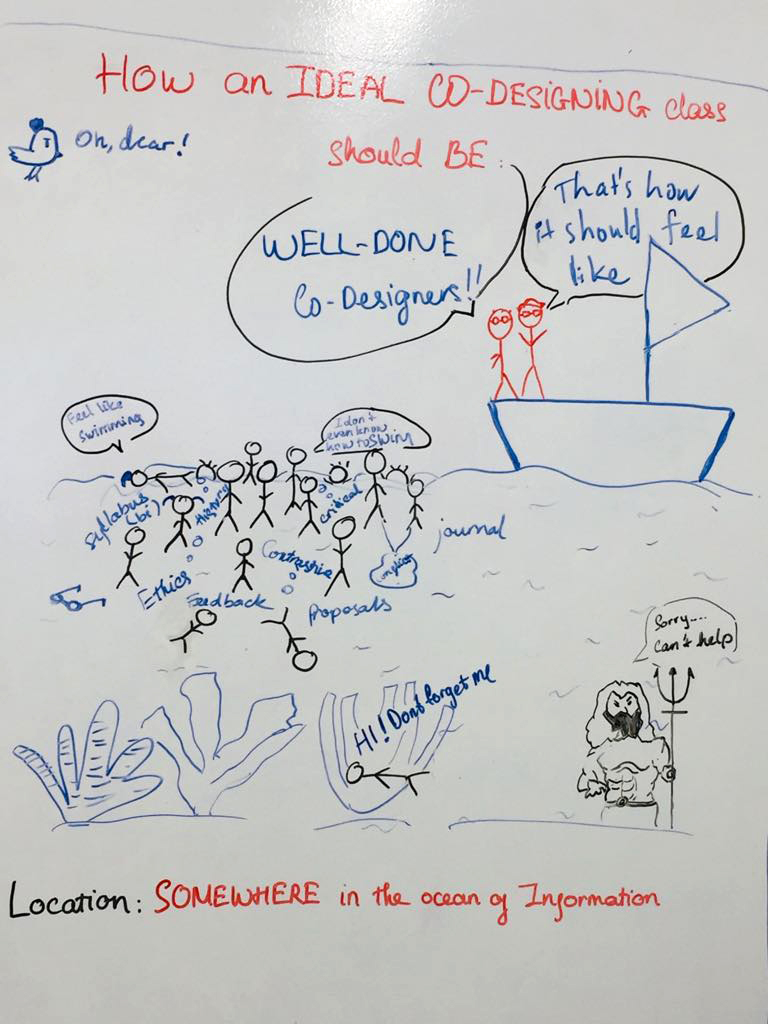 HOW an IDEAL CO-DESIGNING class
should BE:
Oh, dear!
WELL-DONE
Co-Designers!!
That's how
it should feel
like
Feel like
swimming
I don't
even know
how to swim
Syllabus
(bi)
critical
journal
Ethics
Feedback
Proposals
Sorry....
can't help
HI! Dont forget me
Location: SOMEWHERE in the ocean of Information